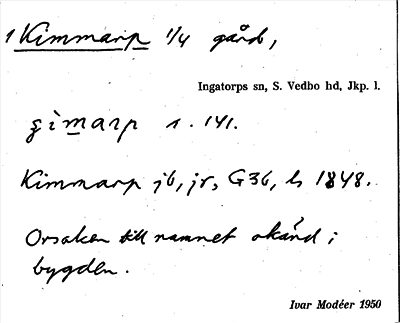 1 Kimmarp 1/4 gård,
Ingatorps sn, S. Vedbo hd, Jkp. l.
s. 141.
Kimmarp jb, jr, G36, ls 1848.
Orsaken till namnet okänd i
bygden.
Ivar Modéer 1950